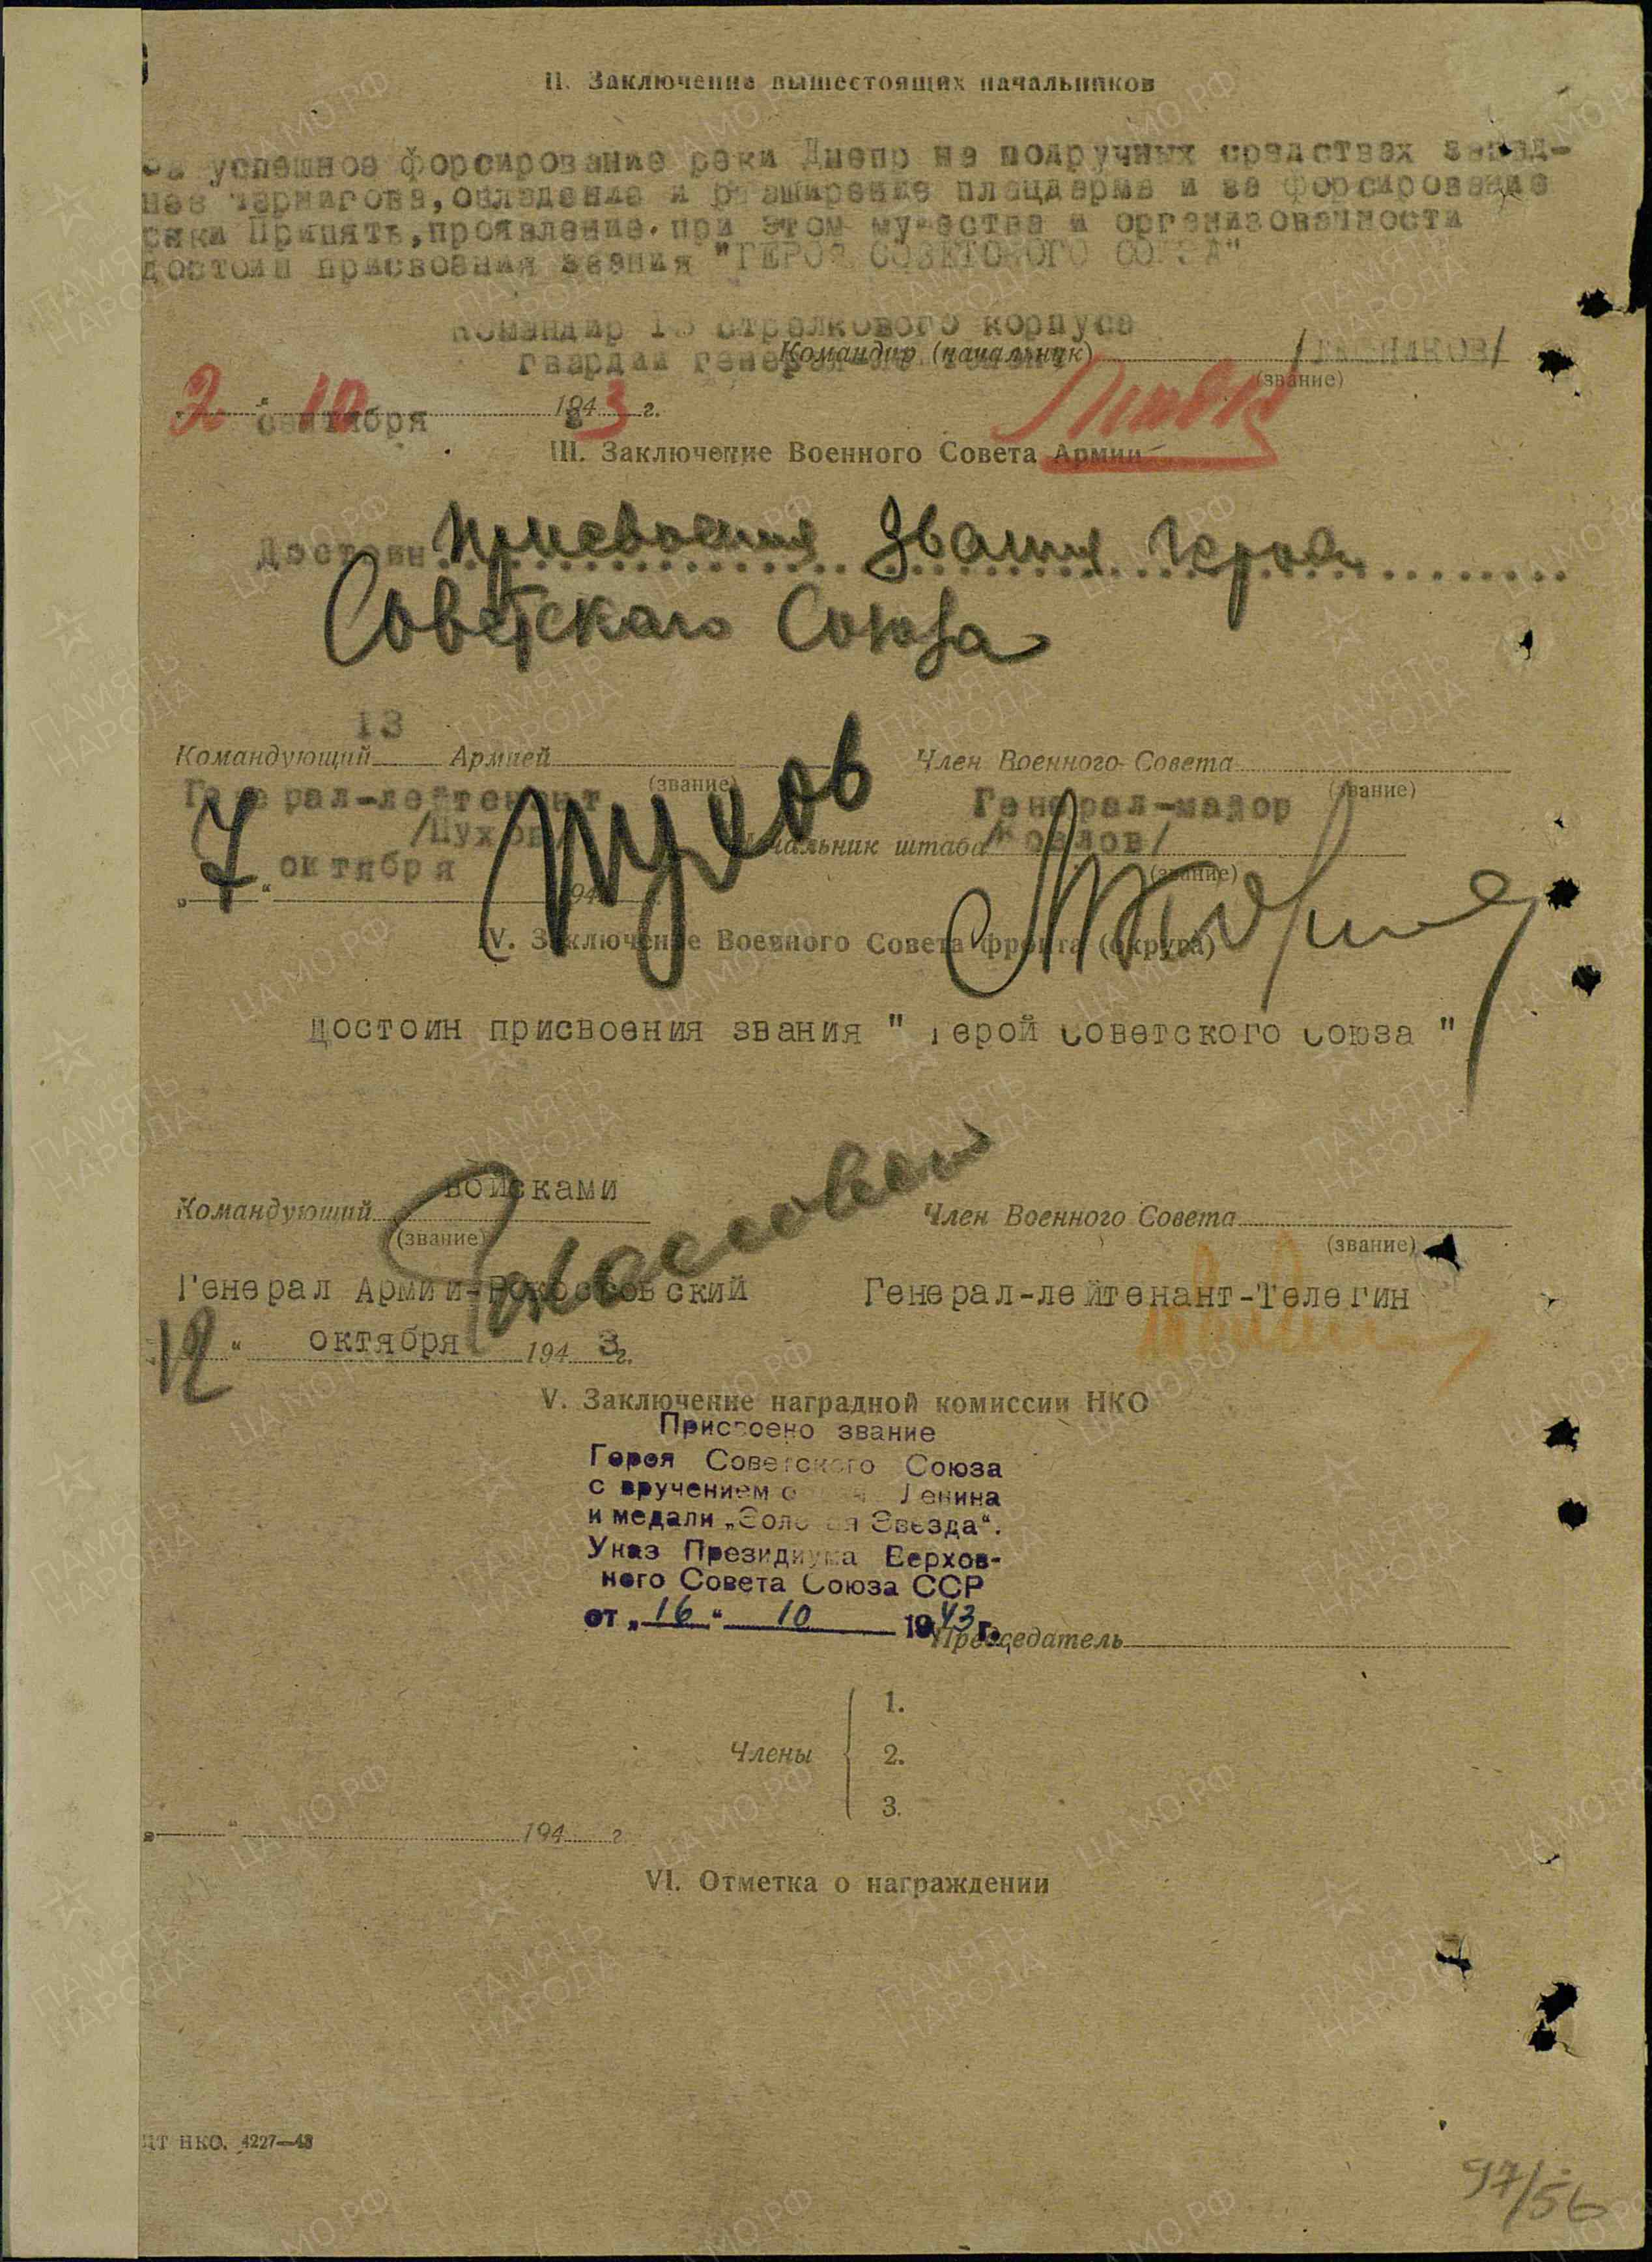 II. Заключение вышестоящих начальников
успешное форсирование реки Днепр на подручных средствах запад-
нее Чернигова, овладение и расширение плацдарма и за форсирование
реки Припять, проявление при этом мужества и организованности
достоин присвоения звания "ГЕРОЯ СОВЕТСКОГО СОЮЗА"
Командир 15 стрелкового корпуса
гвардии генерал-лейтенант
Командир (начальник)
(звание)
2 10
сентября 1943 г.
III. Заключение Военного Совета Армии
Достоин присвоения звания Героя
Советскаго Союза
13
Командующий Армией Член Военного Совета
(звание) (звание)
Генерал-лейтенант Генерал-майор
/Пухов/ Пухов Начальник штаба /Козлов/
(звание)
7 октября 194
IV. Заключение Военного Совета фронта (округа)
Достоин присвоения звания " Герой Советского Союза "
войсками
Командующий Член Военного Совета
(звание) (звание)
Генерал Армии-Рокоссовский Генерал-лейтенант-Телегин
„12“ октября 1943 г.
V. Заключение наградной комиссии НКО
Присвоено звание
Героя Советского Союза
с вручением Ленина
и медали „Золотая Звезда“.
Указ Президиума Верхов-
ного Совета Союза ССР
от „16“ 10 1943 г.
Председатель
1.
Члены 2.
3.
„ “ 194 г.
VI. Отметка о награждении
НКО. 4227—43
97/56
ПАМЯТЬ НАРОДА
ЦА МО РФ